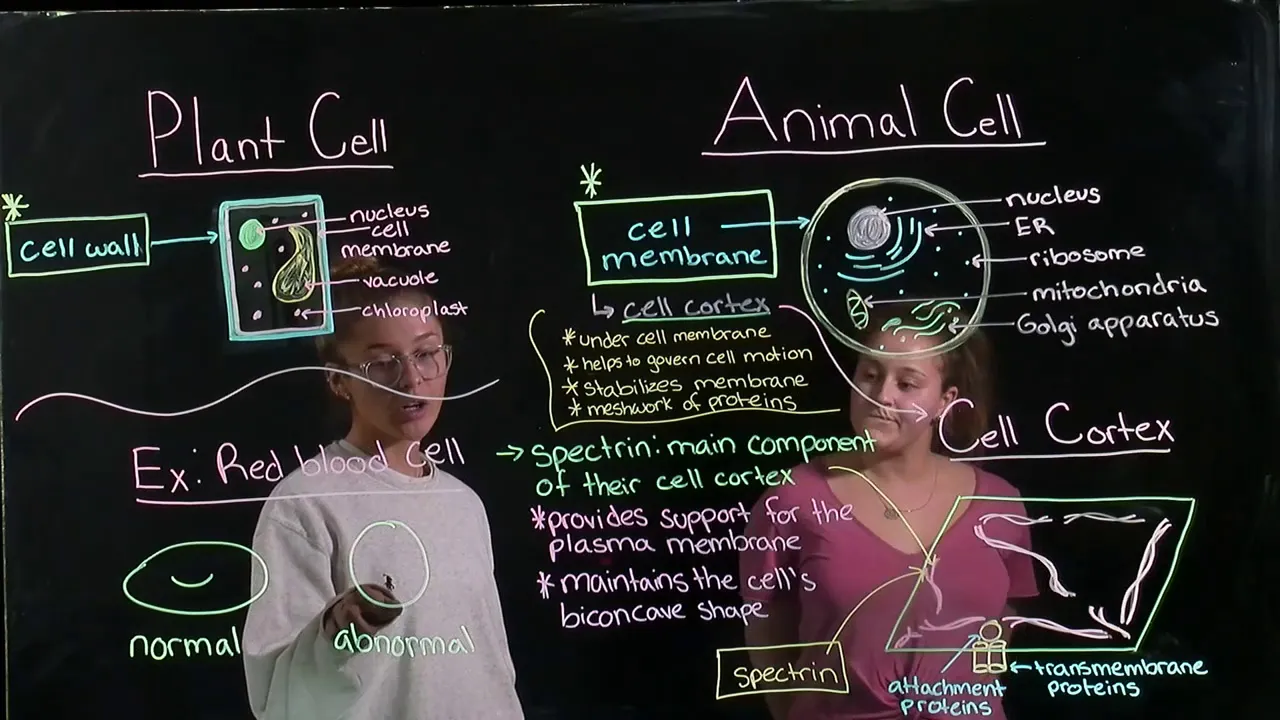 Plant Cell
cell wall
nucleus
cell
membrane
vacuole
chloroplast
Animal Cell
cell
membrane
nucleus
ER
ribosome
mitochondria
Golgi apparatus
↳ cell cortex
* under cell membrane
* helps to govern cell motion
* stabilizes membrane
* meshwork of proteins
Ex: Red blood cell
normal
abnormal
→ spectrin: main component
of their cell cortex
* provides support for the
plasma membrane
* maintains the cell's
biconcave shape
Cell Cortex
spectrin
attachment
proteins
transmembrane
proteins